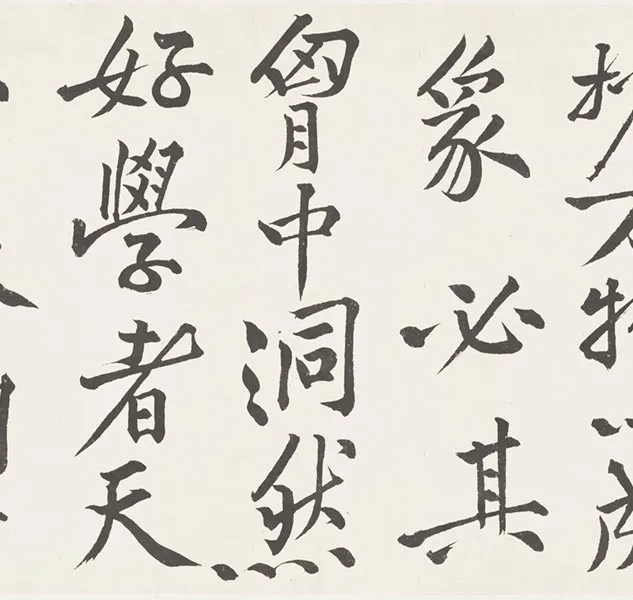 万物
象必其
胷中洞然
好學者天